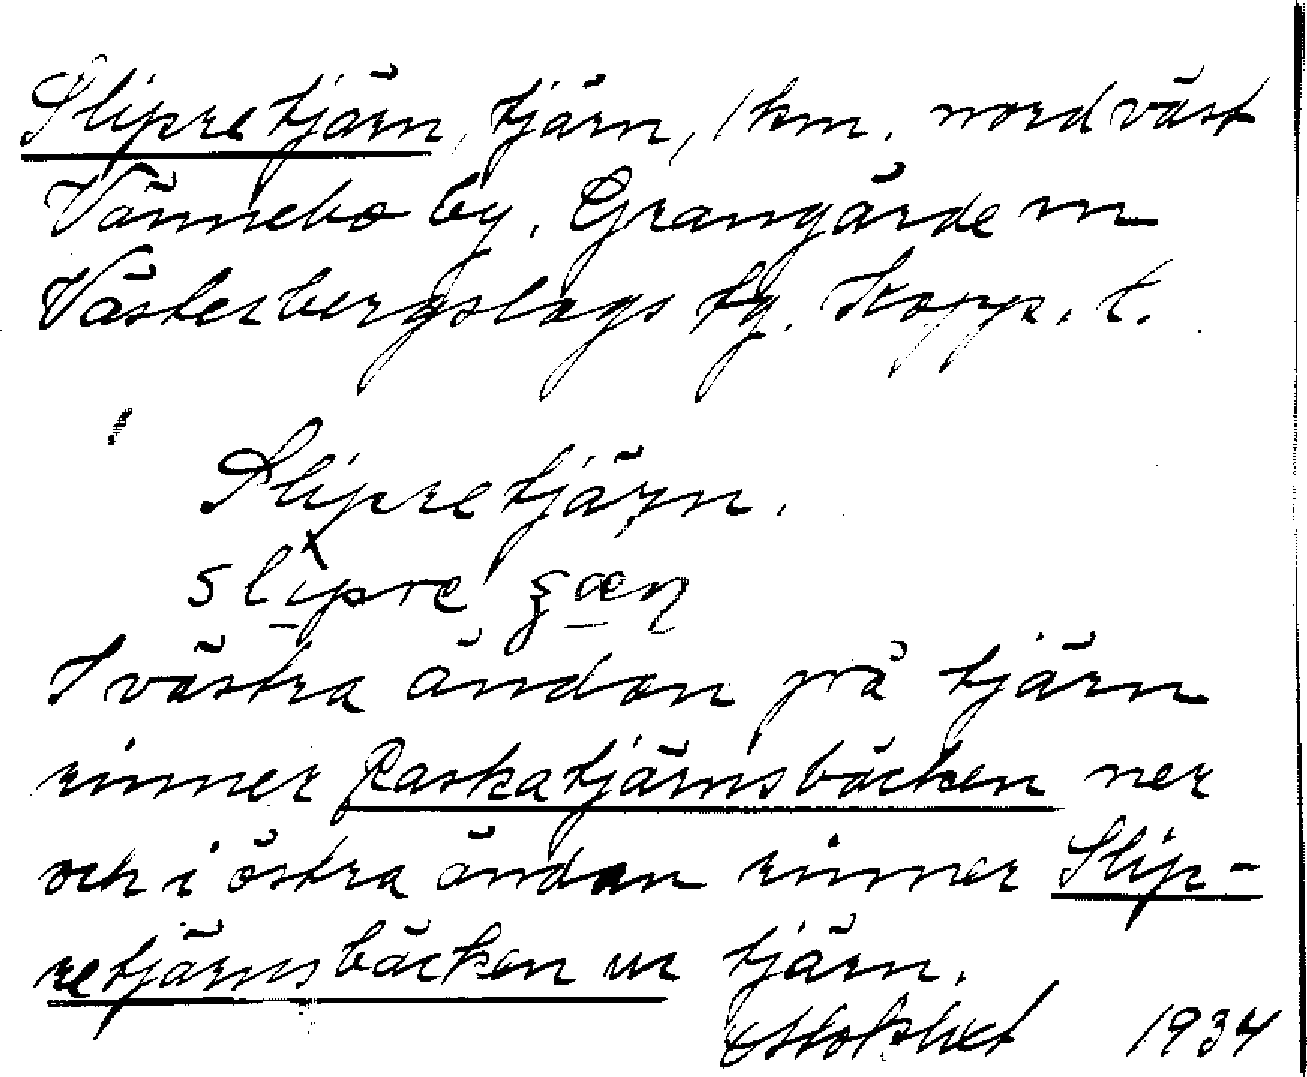 Slipretjärn, tjärn, 1 km. nordväst
Vännebo by. Grangärde sn
Västerbergslags tg. Kopp. l.
Slipretjärn.
slipre
I västra ändan på tjärn
rinner Raskatjärnsbäcken ner
och i östra ändan rinner Slip-
retjärnsbäcken ur tjärn.
1934